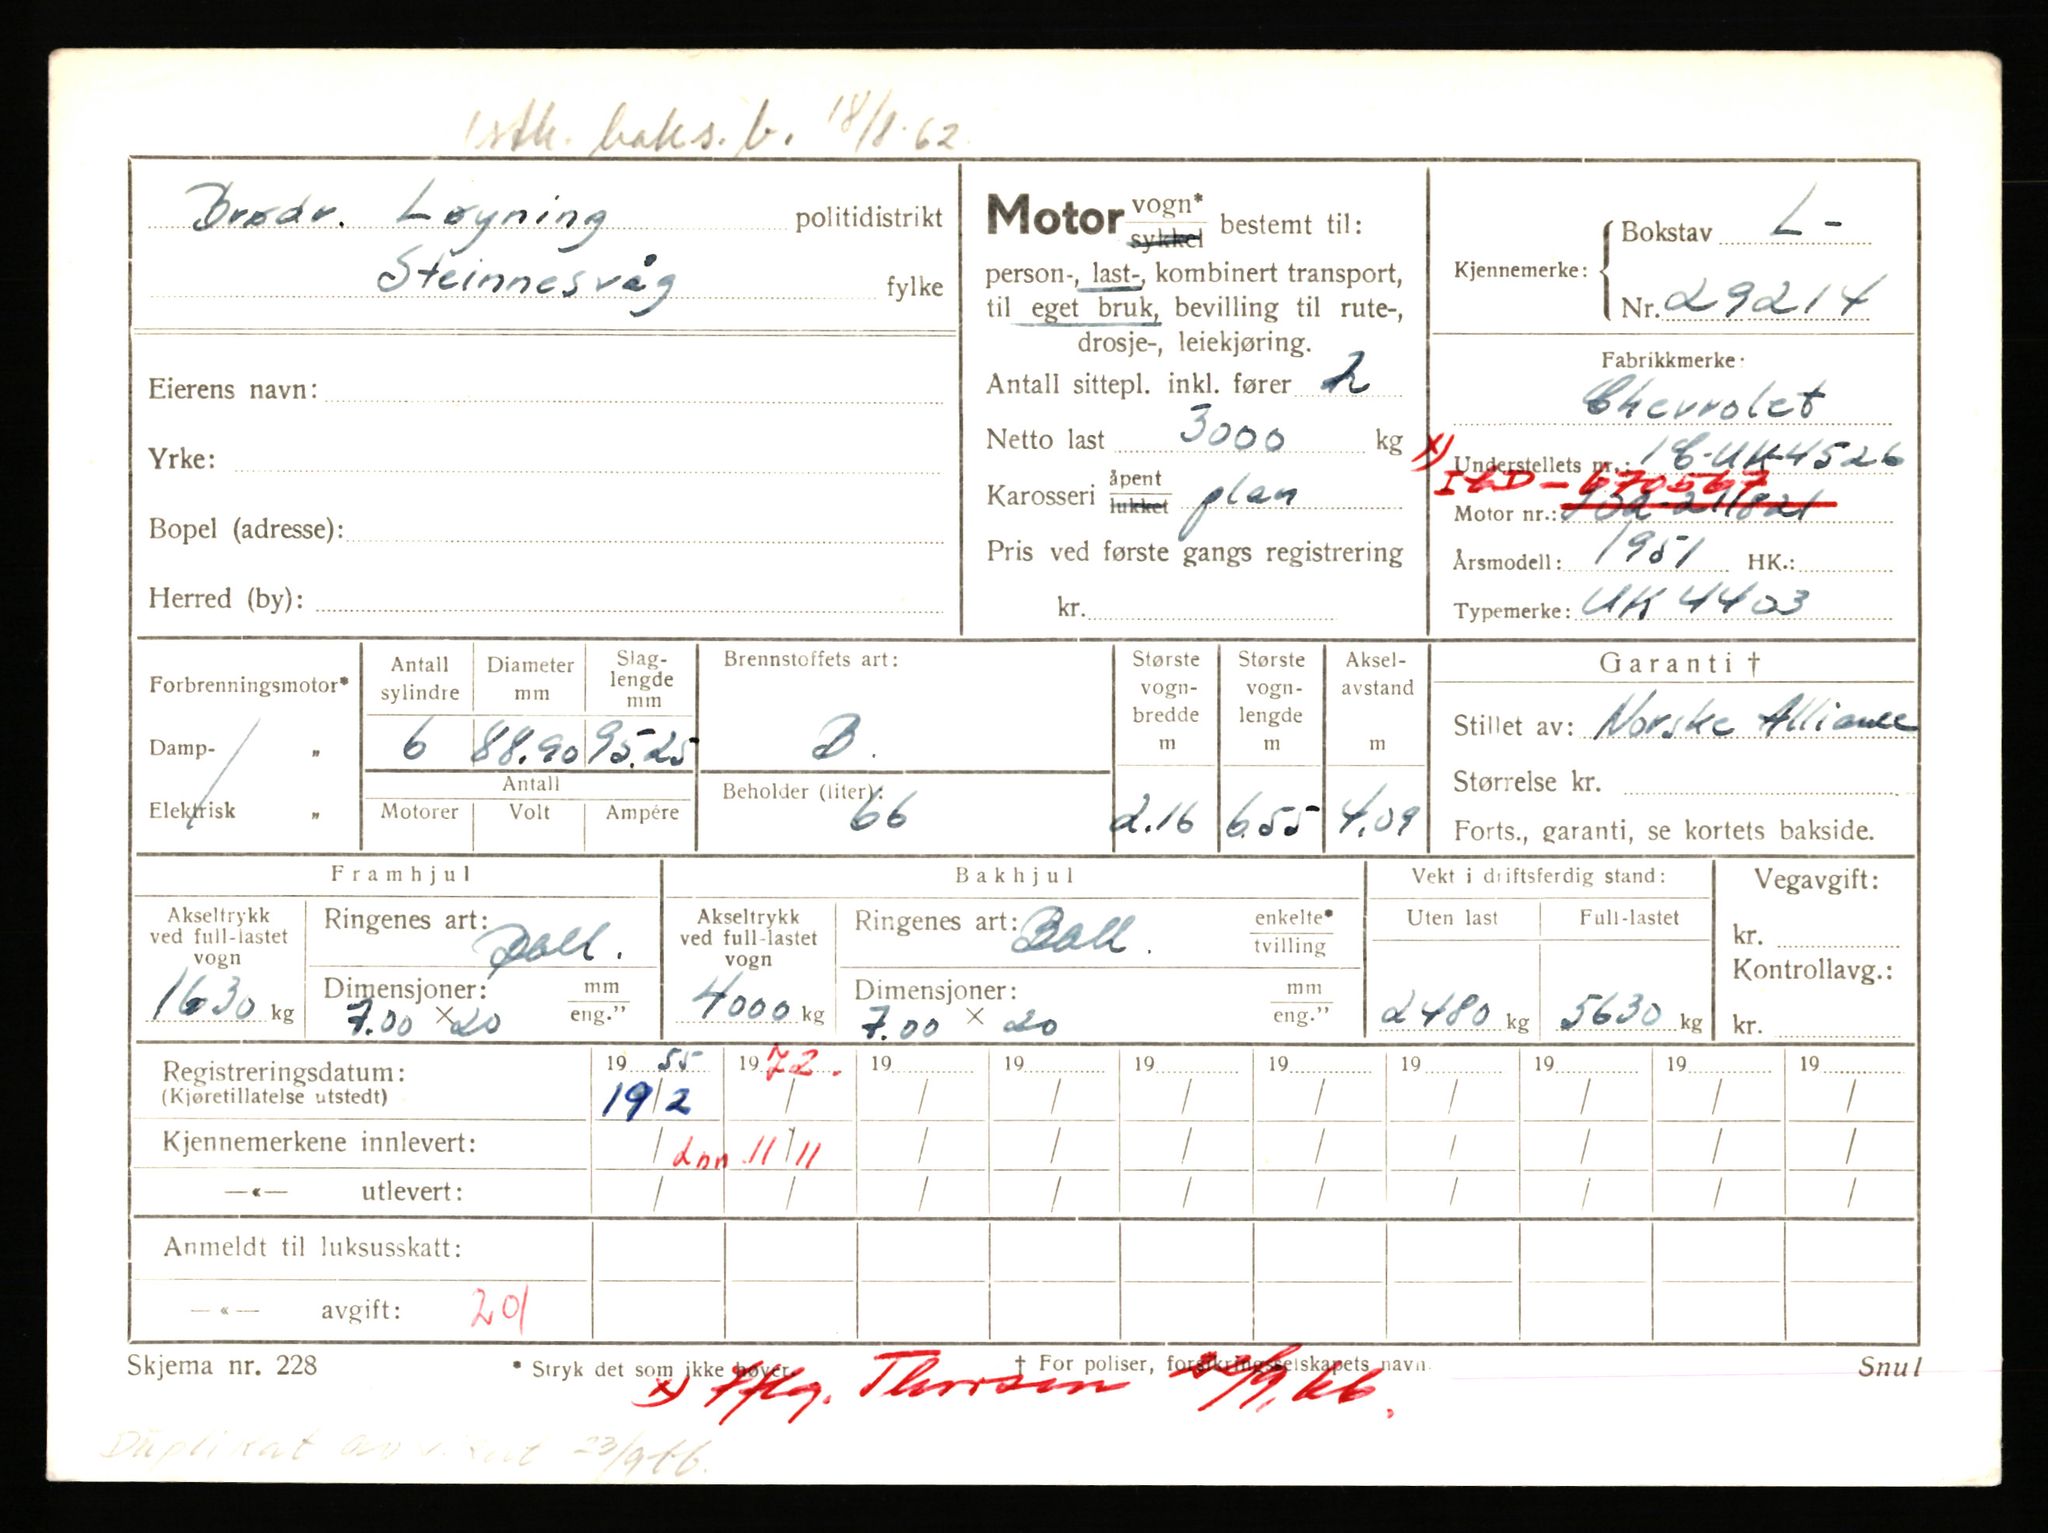 baks. b. 18/8-62
Brødr. Løyning politidistrikt
Steinnesvåg fylke
Eierens navn:
Yrke:
Bopel (adresse):
Herred (by):
Motor vogn* sykkel bestemt til:
person-, last-, kombinert transport,
til eget bruk, bevilling til rute-,
drosje-, leiekjøring.
Antall sittepl. inkl. fører 2
Netto last 3000 kg
Karosseri åpent lukket plan
Pris ved første gangs registrering
kr.
Kjennemerke: Bokstav L-
Nr. 29214
Fabrikkmerke:
Chevrolet
x) Understellets nr.: 18-UK4526
ICD-670567
Motor nr.:
Årsmodell: 1951 HK.:
Typemerke: UK 4403
Forbrenningsmotor*
Damp- „
Elektrisk „
Antall sylindre 6
Diameter mm 88.90
Slag-lengde mm 95.25
Antall
Motorer Volt Ampére
Brennstoffets art:
B.
Beholder (liter):
66
Største vogn-bredde m 2.16
Største vogn-lengde m 6.55
Aksel-avstand m 4.09
Garanti †
Stillet av: Norske Alliance
Størrelse kr.
Forts., garanti, se kortets bakside.
Framhjul
Akseltrykk ved full-lastet vogn
1630 kg
Ringenes art: Ball.
Dimensjoner: mm eng."
7.00 × 20
Bakhjul
Akseltrykk ved full-lastet vogn
4000 kg
Ringenes art: Ball. enkelte* tvilling
Dimensjoner: mm eng."
7.00 × 20
Vekt i driftsferdig stand:
Uten last Full-lastet
2480 kg 5630 kg
Vegavgift:
kr.
Kontrollavg.:
kr.
Registreringsdatum: 19 55 19 72. 19 19 19 19 19 19 19 19
(Kjøretillatelse utstedt) 19/2 / / / / / / / / /
Kjennemerkene innlevert: / inn 11/11 / / / / / / / /
—«— utlevert: / / / / / / / / / /
Anmeldt til luksusskatt:
—«— avgift: 201
Skjema nr. 228 * Stryk det som ikke høver. † For poliser, forsikringsselskapets navn. Snul
x) Thorsen 22/9.66.
Duplikat 23/9 66.